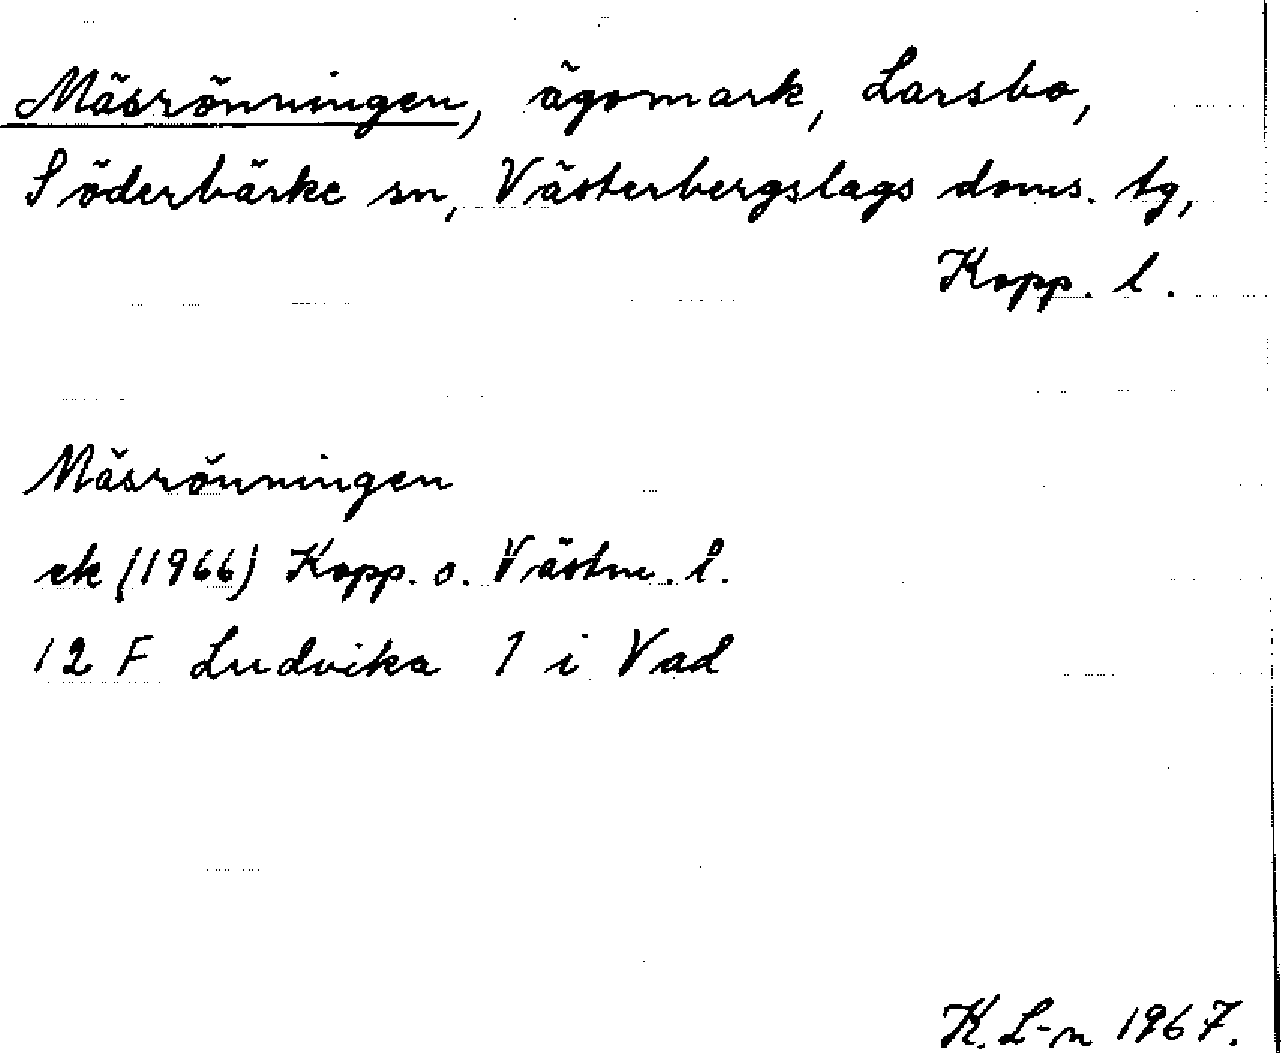 Mäsrönningen, ägomark, Larsbo,
Söderbärke sn, Västerbergslags doms. tg,
Kopp. l.
Mäsrönningen
ek (1966) Kopp. o. Västm. l.
12 F Ludvika 1 i Vad
K. L-n 1967.